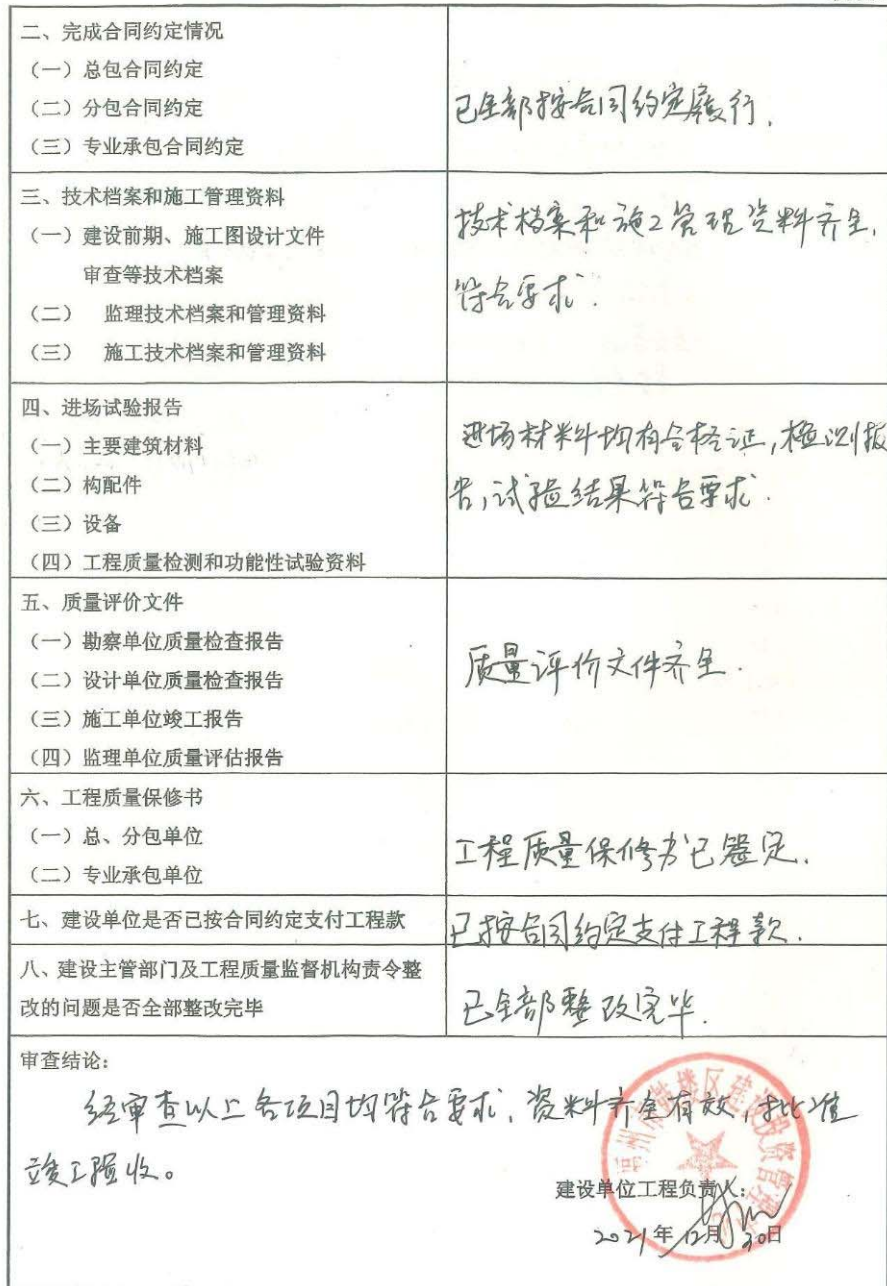 二、完成合同约定情况
（一）总包合同约定
（二）分包合同约定
（三）专业承包合同约定
已全部按合同约定履行.
三、技术档案和施工管理资料
（一）建设前期、施工图设计文件
审查等技术档案
（二） 监理技术档案和管理资料
（三） 施工技术档案和管理资料
技术档案和施工管理资料齐全,
符合要求.
四、进场试验报告
（一）主要建筑材料
（二）构配件
（三）设备
（四）工程质量检测和功能性试验资料
进场材料均有合格证,检测报
告,试验结果符合要求.
五、质量评价文件
（一）勘察单位质量检查报告
（二）设计单位质量检查报告
（三）施工单位竣工报告
（四）监理单位质量评估报告
质量评价文件齐全.
六、工程质量保修书
（一）总、分包单位
（二）专业承包单位
工程质量保修书已签定.
七、建设单位是否已按合同约定支付工程款
已按合同约定支付工程款.
八、建设主管部门及工程质量监督机构责令整
改的问题是否全部整改完毕
已全部整改完毕.
审查结论：
经审查以上各项目均符合要求,资料齐全有效,批准
竣工验收。
建设单位工程负责人：
2021年12月30日